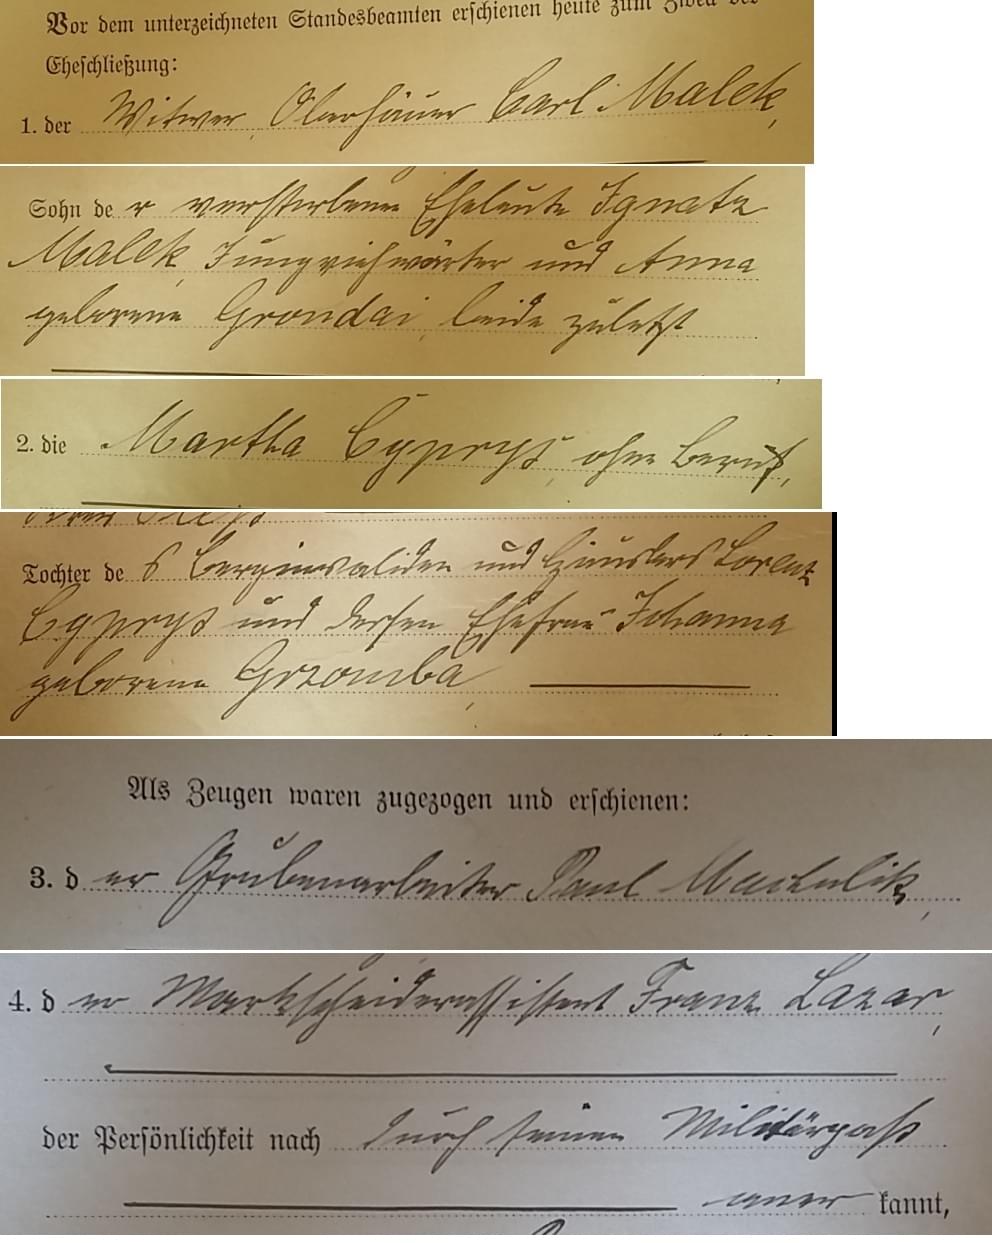 Vor dem unterzeichneten Standesbeamten erschienen heute zum Zweck der
Eheschließung:
1. der Witwer, Oberhäuer Carl Malek,
Sohn der verstorbenen Eheleute Ignatz
Malek, Jungviehwärter und Anna
geborene Grondai, beide zuletzt
2. die Martha Cyprys, ohne Beruf,
Tochter des Berginvaliden und Häuslers Lorenz
Cyprys und dessen Ehefrau Johanna
geborene Grzomba,
Als Zeugen waren zugezogen und erschienen:
3. d er Grubenarbeiter Paul Machulik,
4. d er Markscheiderassistent Franz Lazar,
der Persönlichkeit nach durch seinen Militärpaß
aner kannt,